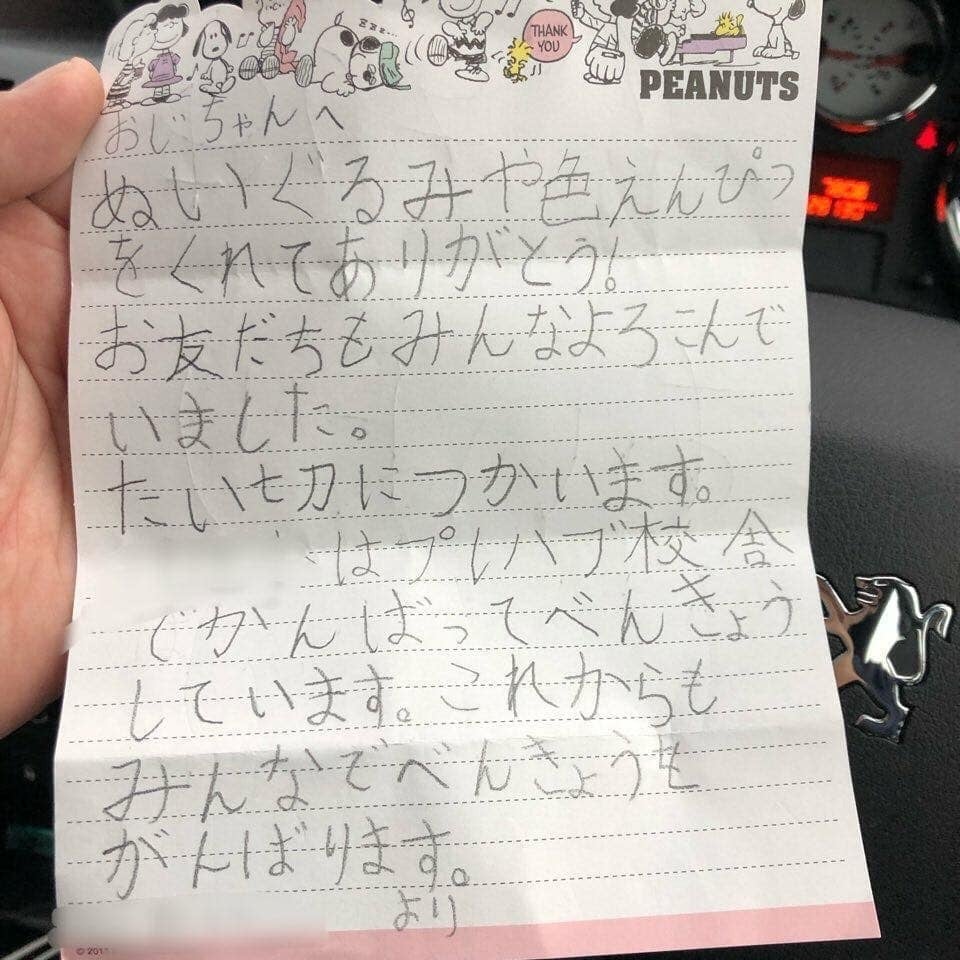 THANK
YOU
PEANUTS
おじちゃんへ
ぬいぐるみや色えんぴつ
をくれてありがとう!
お友だちもみんなよろこんで
いました。
たい切につかいます。
はプレハブ校舎
でがんばってべんきょう
しています。これからも
みんなでべんきょうも
がんばります。
より